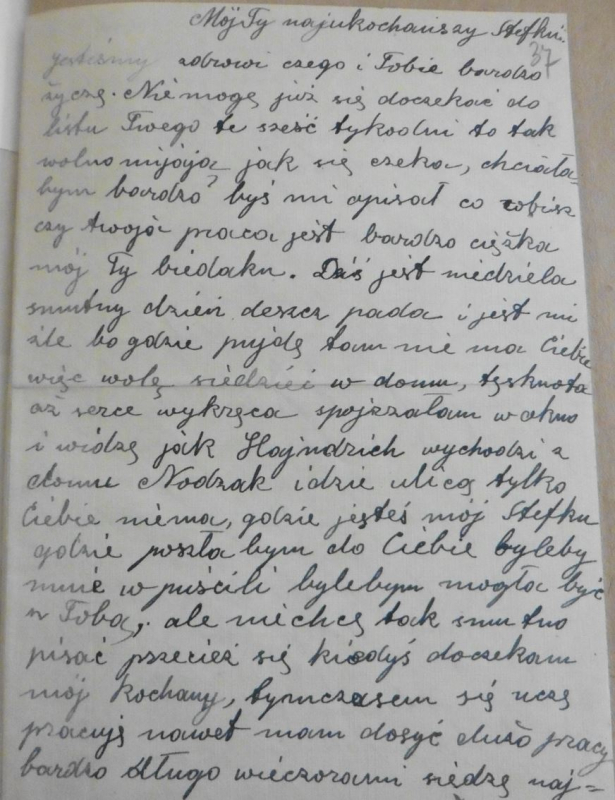 Mój Ty najukochańszy Stefku
37
jesteśmy zdrowi czego i Tobie bardzo
życzę. Nie mogę już się doczekać do
listu Twego te sześć tykodni to tak
wolno mijają jak się czeka, chciała
bym bardzo byś mi opisał co robisz
czy twoja praca jest bardzo ciężka
mój Ty biedaku. Dziś jest niedziela
smutny dzień deszcz pada i jest mi
źle bo gdzie pujdę tam nie ma Ciebie
więc wolę siedzieć w domu, tęsknota
aż serce wykręca spojżałam w okno
i widzę jak Hajndzich wychodzi z
domu Nodzak idzie ulicą tylko
Ciebie niema, gdzie jesteś mój Stefku
gdzie poszła bym do Ciebie byleby
mnie wpuścili bylebym mogła być
z Tobą, ale niechcę tak smutno
pisać przecież się kiedyś doczekam
mój kochany, tymczasem się uczę
pracuję nawet mam dosyć dużo pracy
bardzo długo wieczorami siedzę naj=